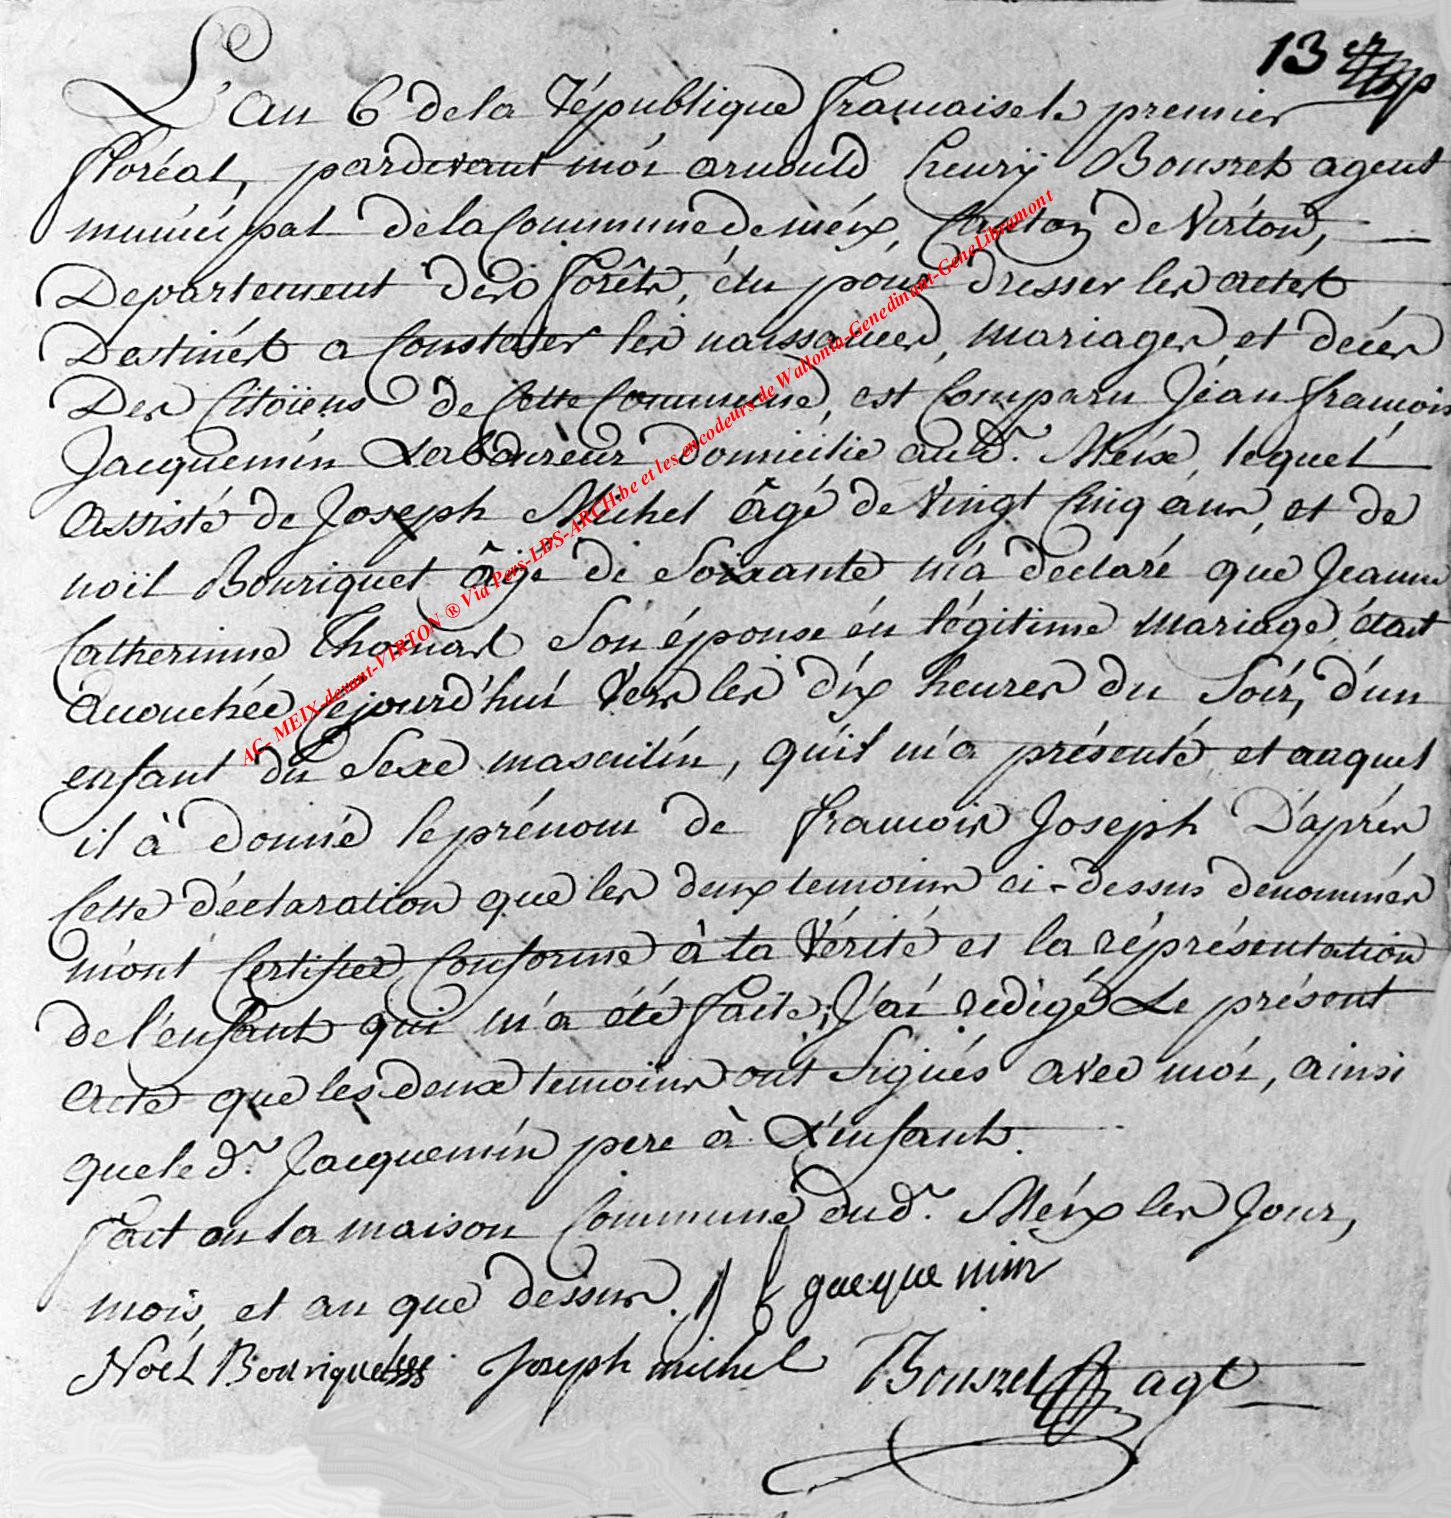 13er
L'an 6 de la république francaise le premier
floréal, pardevant moi arnould henrÿ Bousret agent
municipal de la Commune de meix, Canton de Virton,
Departement des forêts, élu pour dresser les actes
Destinés a Constater les naissances, mariages, et décès
Des Citoïens de Cette Commune, est Comparu Jean francois
Jacquemin Laboureur domicilié aud. Meix, lequel
assisté de Joseph Michel âgé de Vingt Cinq ans, et de
noël Bouriquet âgé de Soixante m'a declaré que Jeanne
Catherinne Thomas Son épouse en légitime mariage, était
accouchée cejourd'hui Vers les dix heures du Soir, d'un
enfant du Sexe masculin, qu'il m'a présenté et auquel
il à donné le prénom de francois Joseph D'après
Cette déclaration que les deux temoins ci-dessus denommés
m'ont Certifiée Conforme à la Vérité et la réprésentation
de l'enfant qui m'a été faite, J'ai redigé Le présent
acte que les deux temoins ont Signés avec moi, ainsi
que le d. Jacquemin pere à L'enfant.
fait en la maison Commune dud. Meix les Jour,
mois, et an que dessus. J f gacquemin
Noël Bouriquet Joseph michel Bousret agt
AC. MEIX-devant-VIRTON ® Via Pers-LDS-ARCH.be et les encodeurs de Wallonia-Genedinant-GeneLibramont